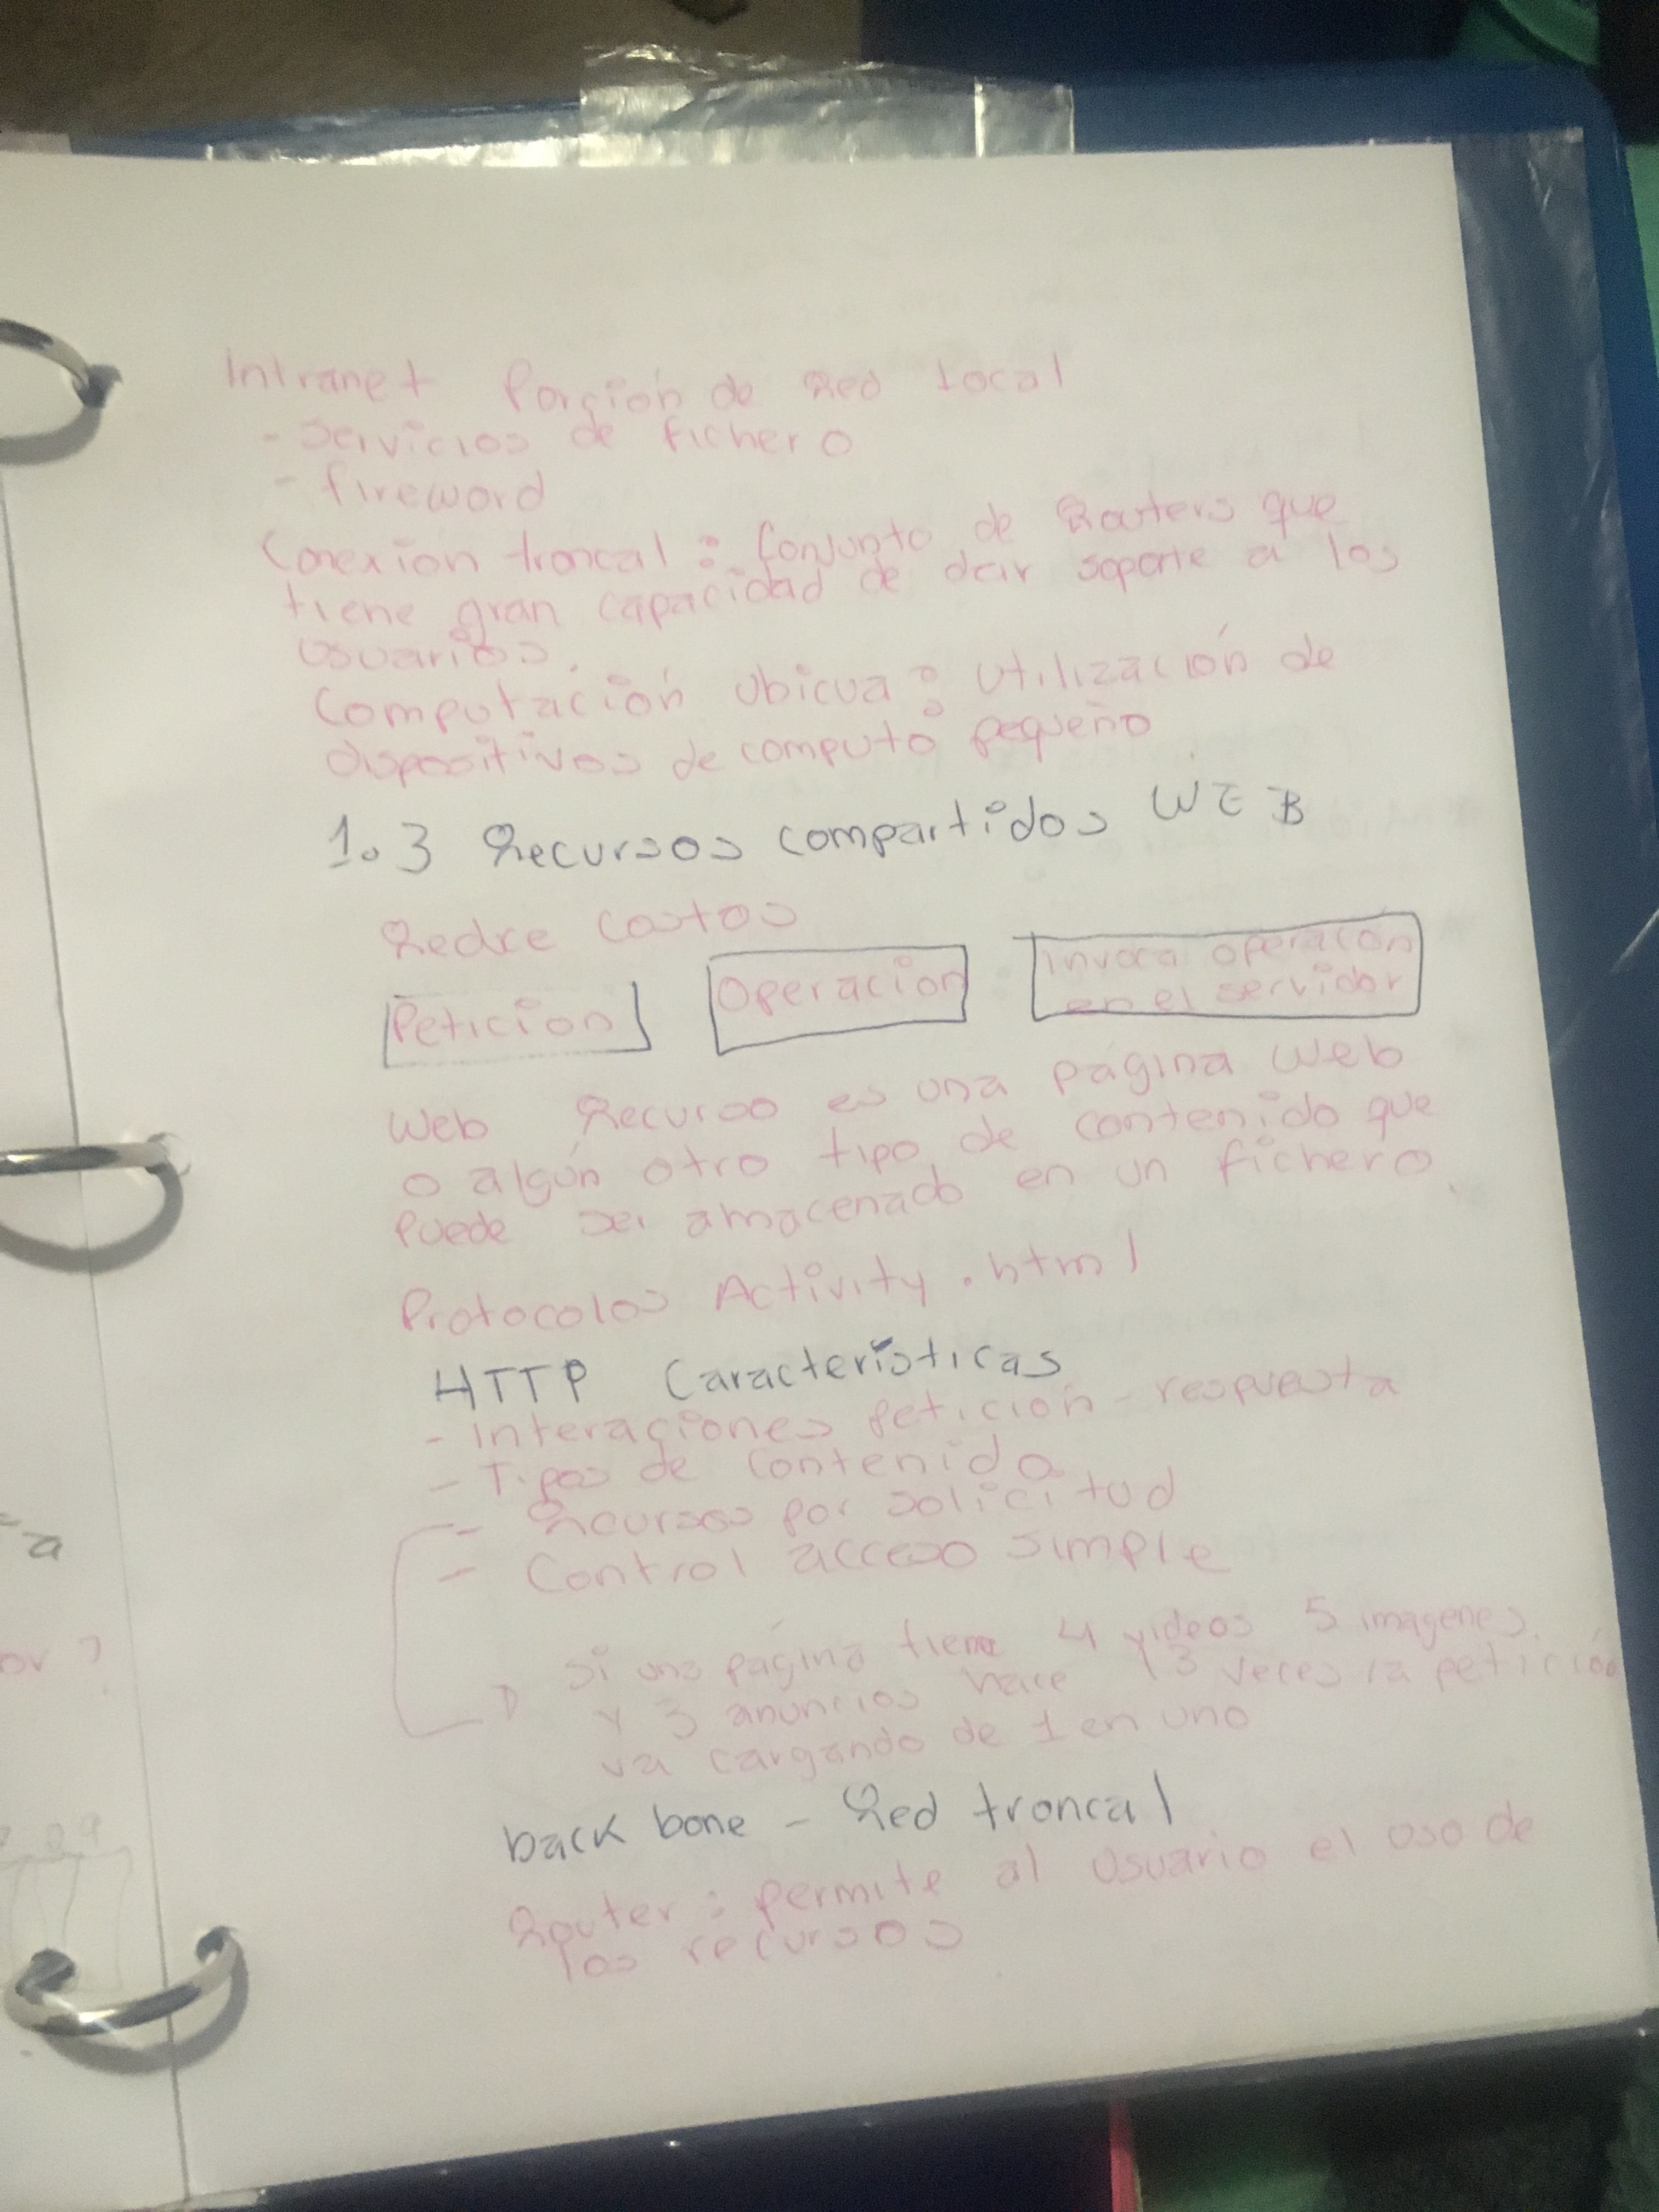 Intranet Porción de Red Local
- Servicios de fichero
- fireword
Conexion troncal : Conjunto de Routers que
tiene gran capacidad de dar soporte a los
usuarios.
Computación ubicua : utilización de
dispositivos de computo pequeño
1.3 Recursos compartidos WEB
Redce Costos
Peticion
Operacion
Invoca operacon
en el servidor
Web Recurso es una pagina web
o algún otro tipo de contenido que
Puede ser amacenado en un fichero.
Protocolos Activity.html
HTTP Características
- Interaciones petición - respuesta
- Tipos de contenido
- Recursos por solicitud
- Control acceso simple
Si una pagina tiene 4 videos 5 imagenes
y 3 anuncios hace 13 veces la petición
va cargando de 1 en uno
back bone - Red troncal
Router : permite al usuario el uso de
los recursos
a
or ?